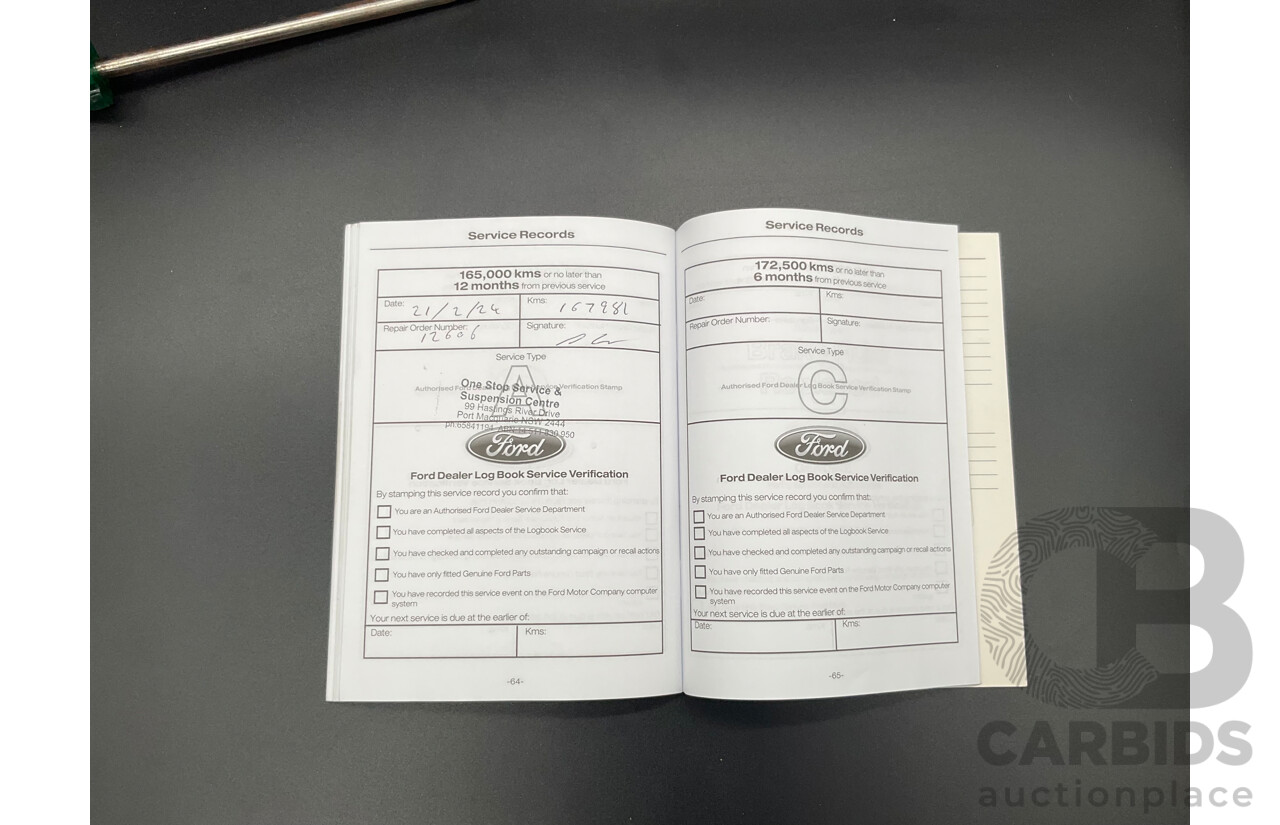 Service Records
165,000 kms or no later than
12 months from previous service
Date: 21/2/24
Kms: 167981
Repair Order Number: 12606
Signature:
Service Type
A
Authorised Ford Dealer Log Book Service Verification Stamp
One Stop Service &
Suspension Centre
99 Hastings River Drive
Port Macquarie NSW 2444
ph:65841194
Ford
Ford Dealer Log Book Service Verification
By stamping this service record you confirm that:
You are an Authorised Ford Dealer Service Department
You have completed all aspects of the Logbook Service
You have checked and completed any outstanding campaign or recall actions
You have only fitted Genuine Ford Parts
You have recorded this service event on the Ford Motor Company computer
system
Your next service is due at the earlier of:
Date:
Kms:
-64-
Service Records
172,500 kms or no later than
6 months from previous service
Date:
Kms:
Repair Order Number:
Signature:
Service Type
C
Authorised Ford Dealer Log Book Service Verification Stamp
Ford
Ford Dealer Log Book Service Verification
By stamping this service record you confirm that:
You are an Authorised Ford Dealer Service Department
You have completed all aspects of the Logbook Service
You have checked and completed any outstanding campaign or recall actions
You have only fitted Genuine Ford Parts
You have recorded this service event on the Ford Motor Company computer
system
Your next service is due at the earlier of:
Date:
Kms:
-65-
CB
CARBIDS
auctionplace